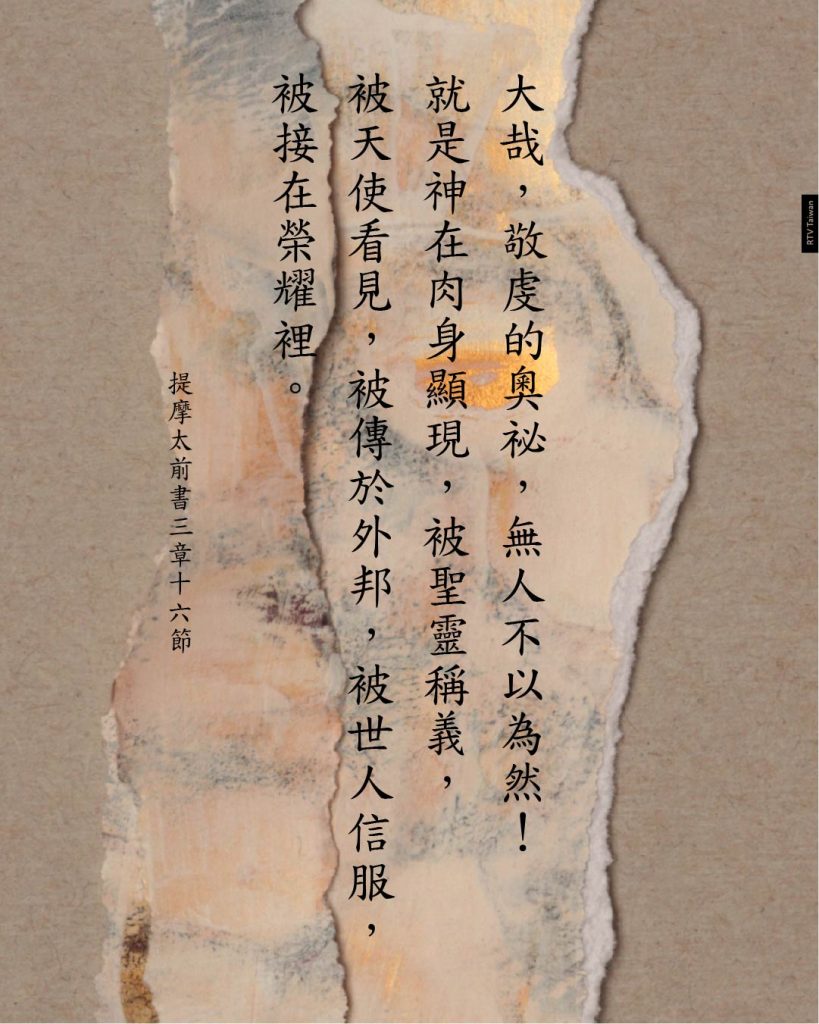 大哉，敬虔的奧祕，無人不以為然！
就是神在肉身顯現，被聖靈稱義，
被天使看見，被傳於外邦，被世人信服，
被接在榮耀裡。
提摩太前書三章十六節
RTV Taiwan